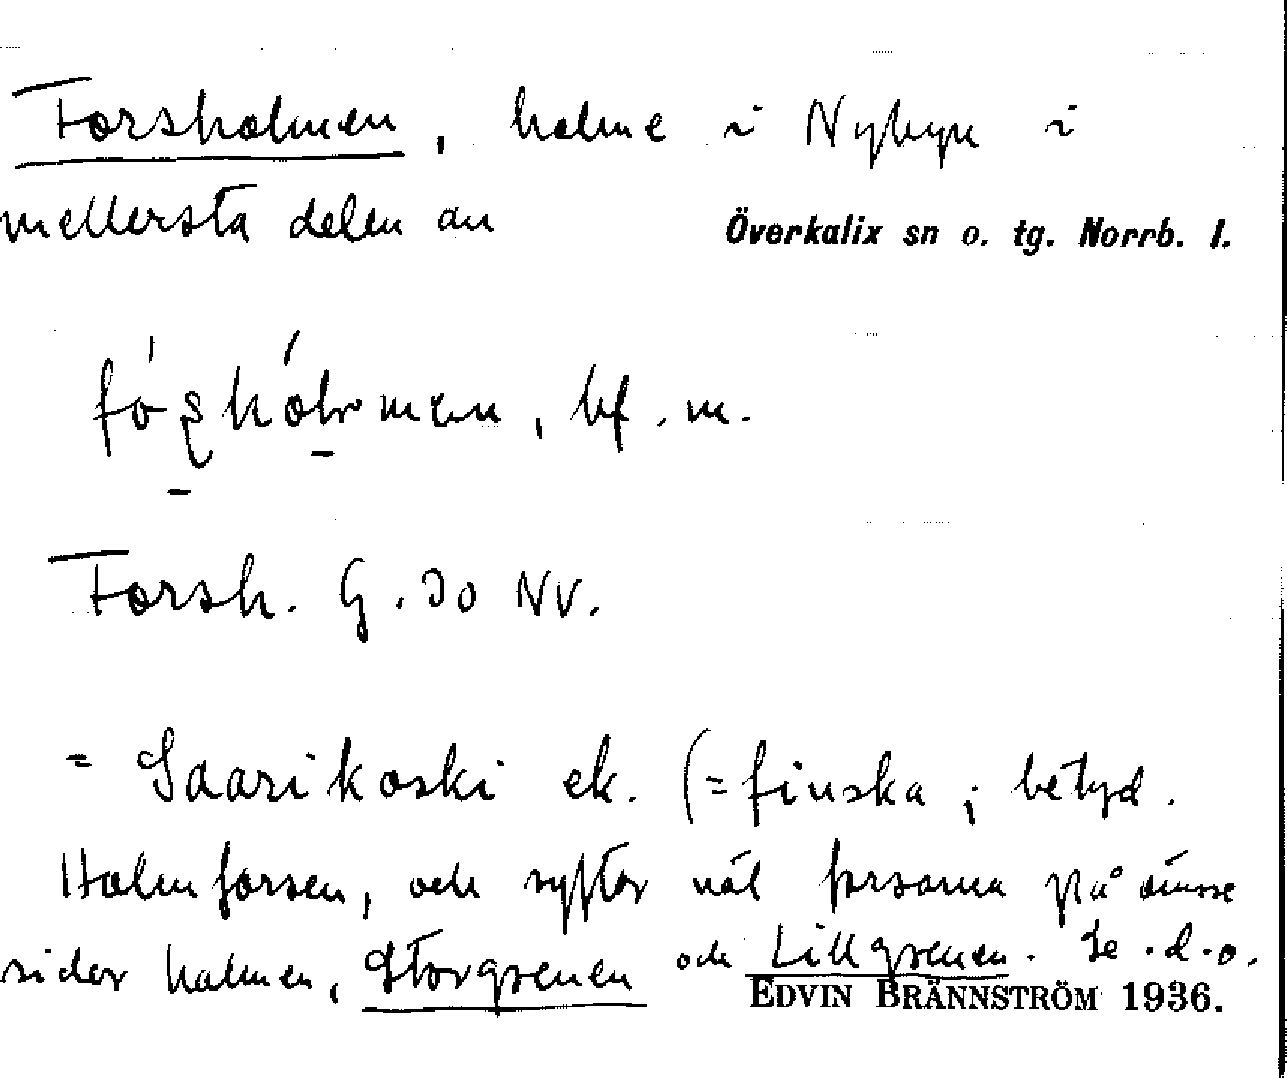 Forsholmen, holme i Nybyn i
mellersta delen av
Överkalix sn o. tg. Norrb. l.
bf. m.
Forsh. G. 30 NV.
= Saarikoski ek. (= finska; betyd.
Holmforsen, och syftar väl forsarna på ömse
sidor holmen, Storgrenen och Lillgrenen. Se. d. o.
EDVIN BRÄNNSTRÖM 1936.